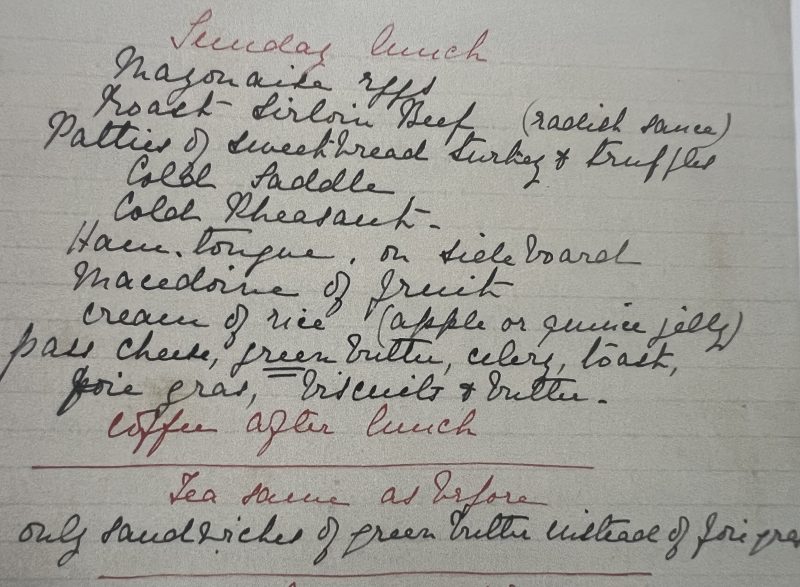 Sunday lunch
Mayonaise eggs
Roast Sirloin Beef (radish sauce)
Patties of sweetbread turkey & truffles
Cold Saddle
Cold Pheasant -
Ham. tongue. on sideboard
Macedoine of fruit
cream of rice (apple or quince jelly)
pass cheese, green butter, celery, toast,
foie gras, biscuits & butter.
Coffee after lunch
Tea same as before
only sandwiches of green butter instead of foie gras